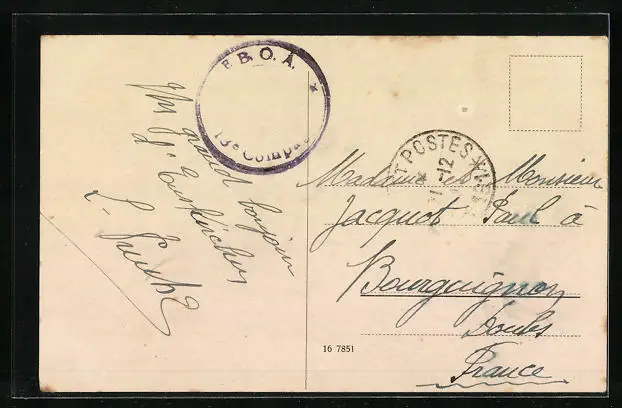 B.O.A.
13e Compag
Un grand bonjour
d'Euskirchen
T POSTES *
-12
Madame et Monsieur
Jacquot Paul à
Bourguignon
Doubs
France
16 7851